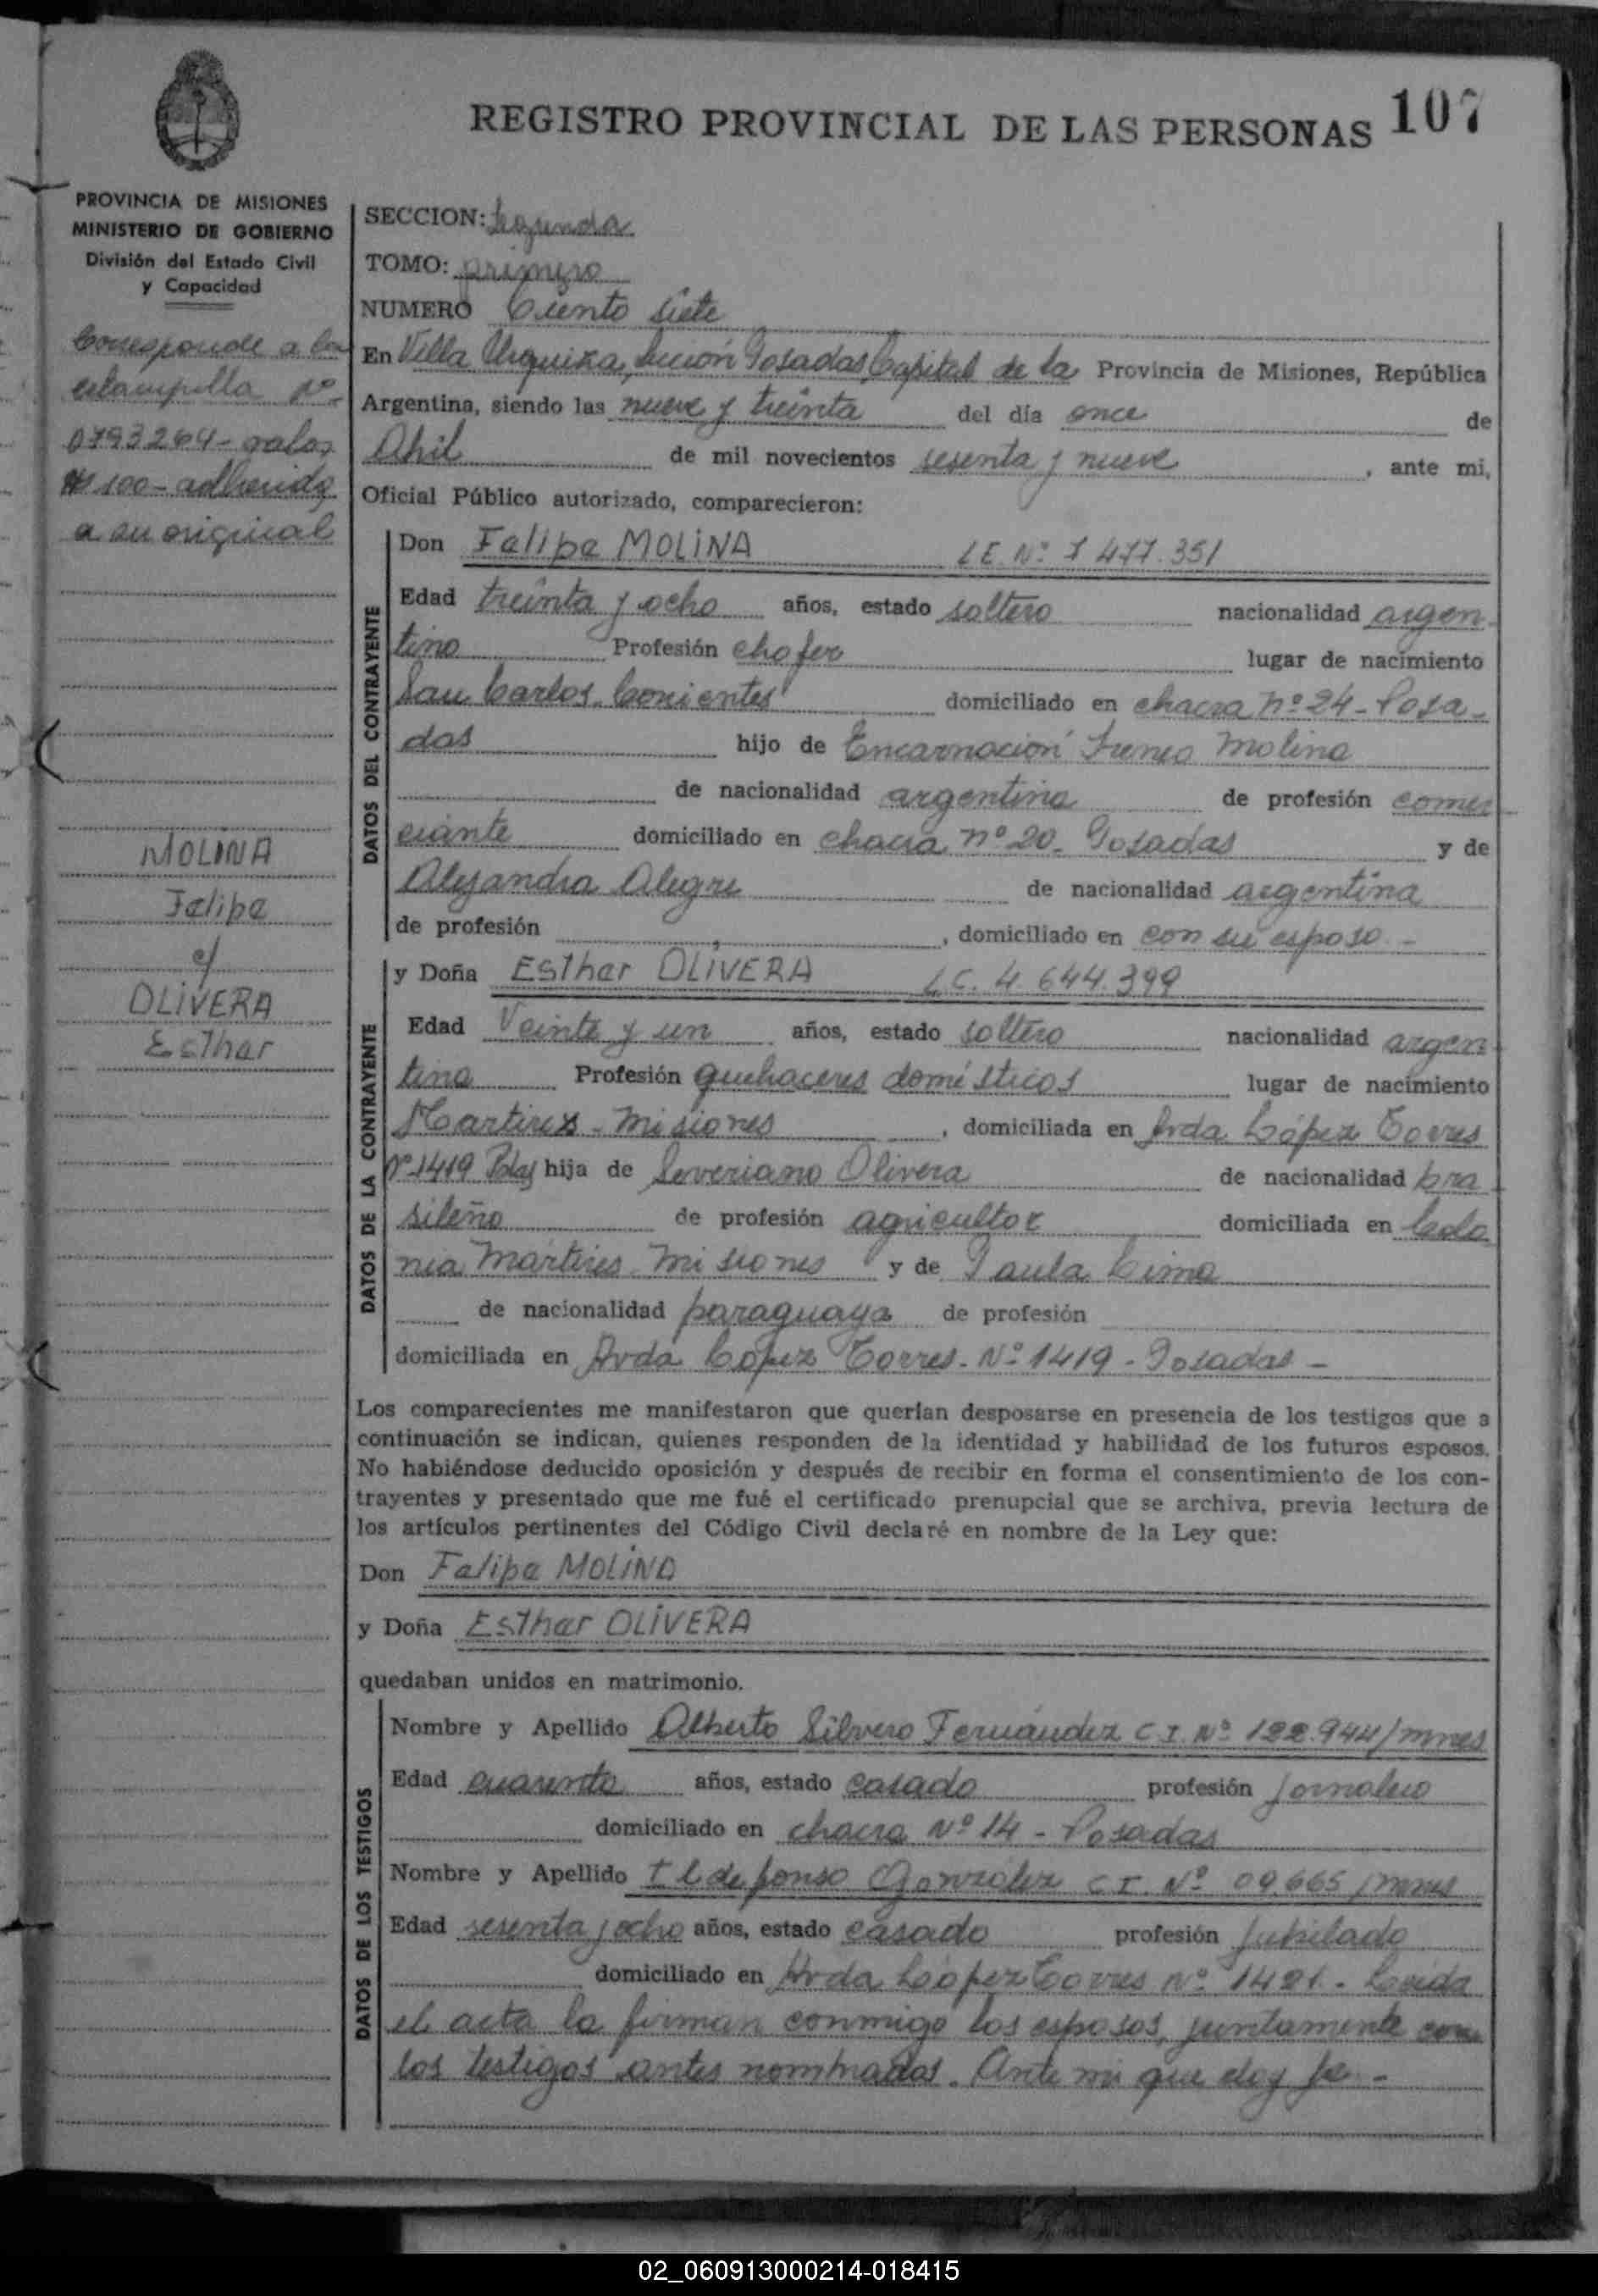 REGISTRO PROVINCIAL DE LAS PERSONAS 107
PROVINCIA DE MISIONES
MINISTERIO DE GOBIERNO
División del Estado Civil
y Capacidad
Corresponde a la
estampilla nº
0793264 - valor
$ 100 - adherida
a su original
MOLINA
Felipe
c/
OLIVERA
Esther
SECCION: Segunda
TOMO: primero
NUMERO Ciento siete
En Villa Urquiza, sección Posadas Capital de la Provincia de Misiones, República
Argentina, siendo las nueve y treinta del día once de
Abril de mil novecientos sesenta y nueve, ante mi,
Oficial Público autorizado, comparecieron:
DATOS DEL CONTRAYENTE
Don Felipe MOLINA L.E. Nº 7 477.351
Edad treinta y ocho años, estado soltero nacionalidad argen-
tino Profesión chofer lugar de nacimiento
San Carlos. Corrientes domiciliado en chacra nº 24 - Posa-
das hijo de Encarnación Ireneo Molina
de nacionalidad argentina de profesión comer
ciante domiciliado en chacra nº 20 - Posadas y de
Alejandra Alegre de nacionalidad argentina
de profesión , domiciliado en con su esposo -
DATOS DE LA CONTRAYENTE
y Doña Esther OLIVERA L.C. 4.644.399
Edad Veinte y un años, estado soltero nacionalidad argen
tina Profesión quehaceres domésticos lugar de nacimiento
Martires - Misiones, domiciliada en Avda López Torres
Nº 1419 Pdas hija de Severiano Olivera de nacionalidad bra
sileño de profesión agricultor domiciliada en Colo
nia Mártires Misiones y de Paula Cima
de nacionalidad paraguaya de profesión
domiciliada en Avda López Torres - Nº 1419 - Posadas -
Los comparecientes me manifestaron que querían desposarse en presencia de los testigos que a
continuación se indican, quienes responden de la identidad y habilidad de los futuros esposos.
No habiéndose deducido oposición y después de recibir en forma el consentimiento de los con-
trayentes y presentado que me fué el certificado prenupcial que se archiva, previa lectura de
los artículos pertinentes del Código Civil declaré en nombre de la Ley que:
Don Felipe MOLINA
y Doña Esther OLIVERA
quedaban unidos en matrimonio.
DATOS DE LOS TESTIGOS
Nombre y Apellido Alberto Silvero Fernández C.I. Nº 122.944/mnes
Edad cuarenta años, estado casado profesión Jornalero
domiciliado en chacra Nº 14 - Posadas
Nombre y Apellido Ildefonso González C.I. Nº 09.665/mnes
Edad sesenta y ocho años, estado casado profesión Jubilado
domiciliado en Avda López Torres Nº 1421. - Leida
el acta la firman conmigo los esposos, juntamente con
los testigos antes nombrados. Ante mi que doy fe -
02_060913000214-018415